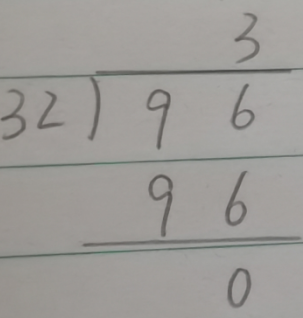 3
32) 96
96
0